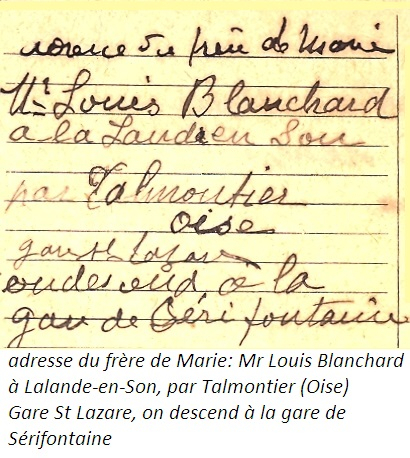 adresse du frère de Marie
Mr Louis Blanchard
a la Landeen Son
par Talmontier
oise
gare st Lazare
on descend à la
gare de Séri fontaine
adresse du frère de Marie: Mr Louis Blanchard
à Lalande-en-Son, par Talmontier (Oise)
Gare St Lazare, on descend à la gare de
Sérifontaine